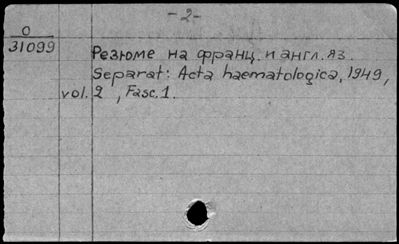 -2-
О
31099
Резюме на франц. и англ. яз.
Separat: Acta haematologica, 1949,
vol. 2 , Fasc. 1.